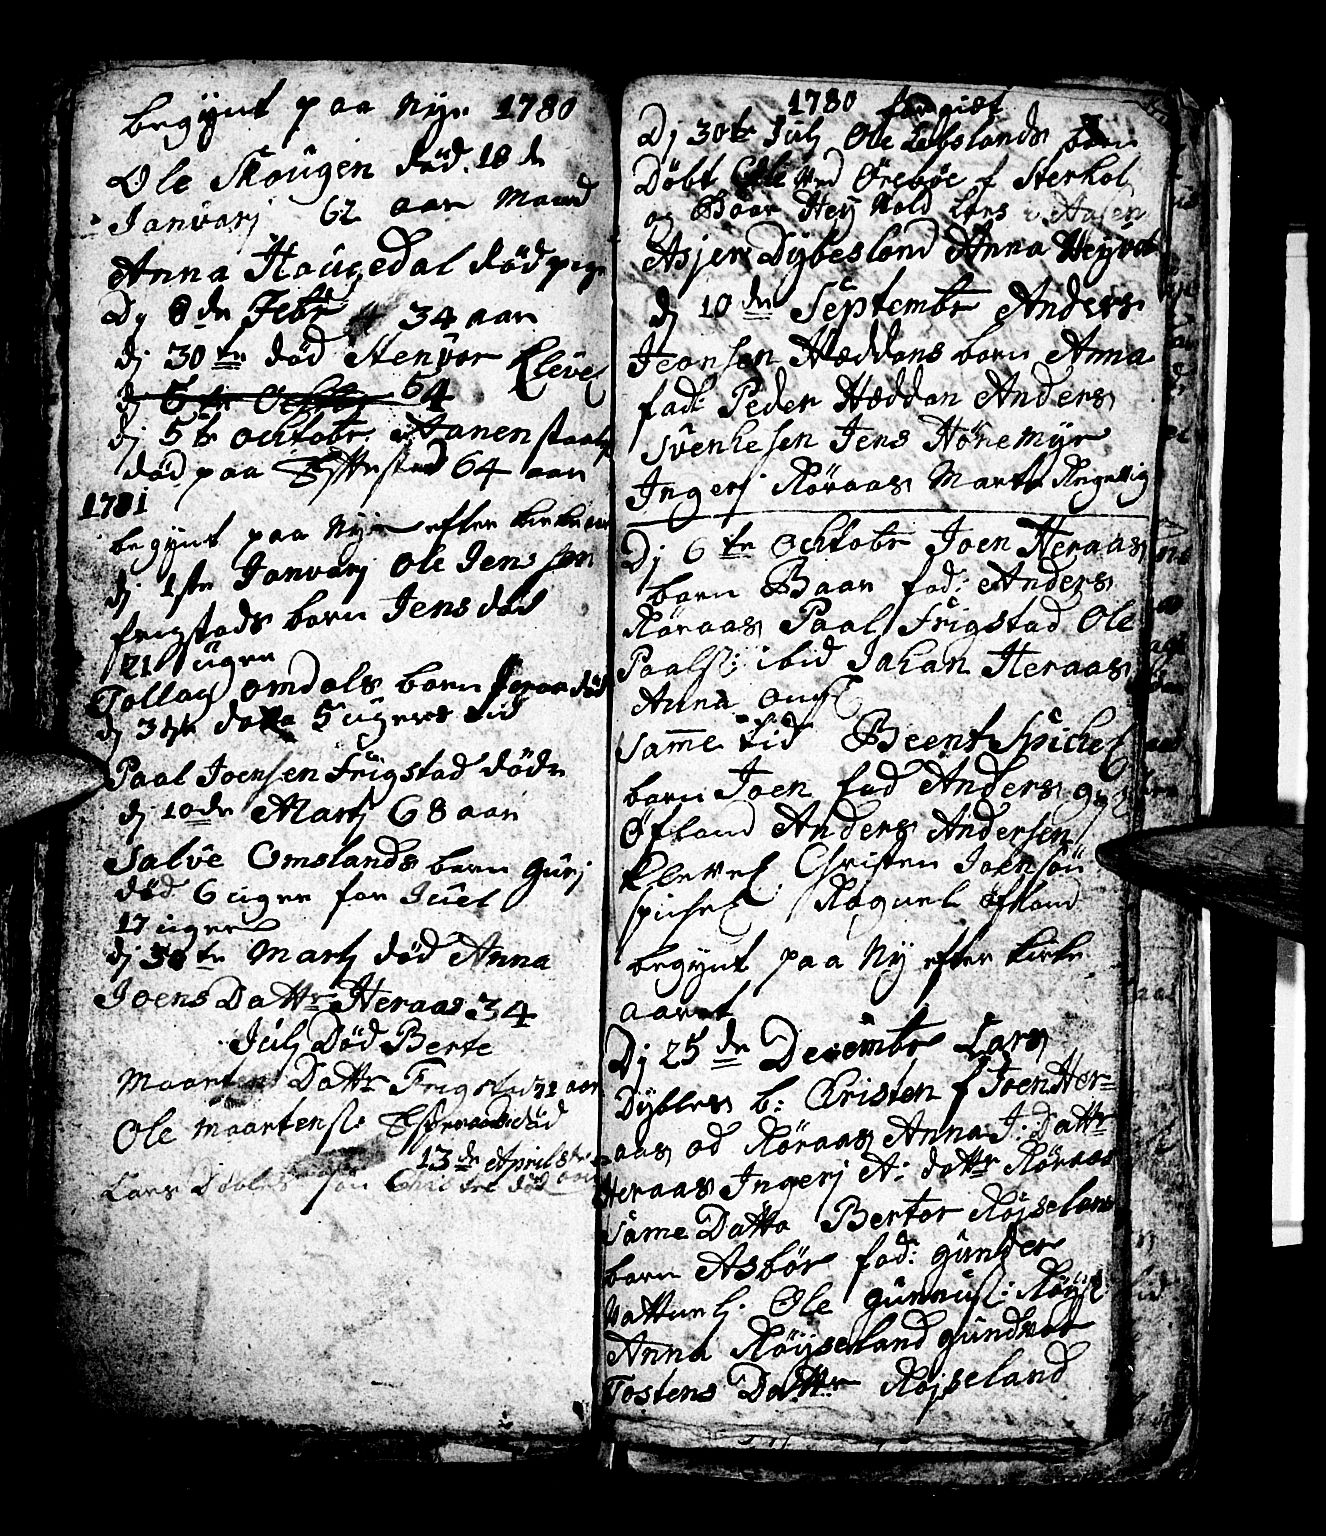 begynt paa Nye 1780
Ole Skougen død. 18 de
Januarj 62 aar Mand
Anna Hougedal død pige
Dj 8 de Febr 34 aar
dj 30 te død Stenvor Klevel
64
dj 5 te Ochtobr Aanenstaals
død paa 64 aar
1781
begynt paa Nye efter
dj 1ste Januarj Ole Jens søn
frigstads barn Jens død
21 uger
Tollag omdals barn død
dj 3die dato 5 ugers tid
Paal Joensen Frigstad døde
dj 10 de Martj 68 aar
Salve Omslands barn gurj
død 6 uger for Juel
17 uger
dj 30 te Martj død Anna
Joens Dattr Heraas 34
Julj Død Berte
Maarten Dattr Frigstad 71 aar
Ole Maartens død
13 de April
Lars søn død
1780
Dj 30 te Julj Ole Lebslands barn
Døbt Ole ved Ørebøe f Sterkol
og Baar Heij Kold Lars Aasen
Asjer Dybesland Anna
dj 10 de Septembr Anders
Jeonsen Hæddans barn Anna
fad: Peder Hæddan Anders
Svenkesen Jens Hønemyr
Ingerj Røraas Marte
Dj 6 te Ochtobr Joen Heraas
barn Baar fad: Anders
Røraas Paal Frigstad Ole
Paals: ibid Johan Heraas
Anna
same tid Beent Spichel
barn Joen fad Anders
Øfland Anders Andersen
Klevel Christen Joensøn
spichel Raquel Øfland
begynt paa Ny efter kirke
aaret
Dj 25 de Decembr Lars
Dybles b: Christen f Joen Her=
aas od Røraas Anna J: Dattr
Heraas Ingerj A: dattr Røraas
same Datto Bertor Røjseland
barn Asbør fad: gunder
Ole gunnus: Røijs:
Anna Røijseland gundvor
Tostens Dattr Røjseland